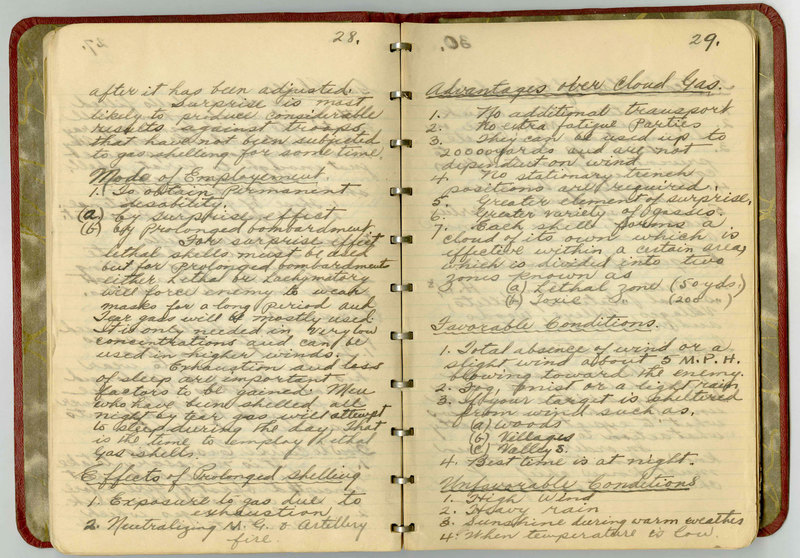 28.
after it has been adjusted.
Surprise is most
likely to produce considerable
results against troops
that have not been subjected
to gas shelling for some time.
Mode of Employement.
1. To obtain Permanent
disability.
(a) by surprise effect
(b) by Prolonged bombardment.
For surprise effect
lethal shells must be used
but for prolonged bombardments
either Lethal or Lachymatory
will force enemy to wear
masks for a long period and
Tear gas will be mostly used
It is only needed in very low
concentrations and can be
used in higher winds.
Exhaustion and loss
of sleep are important
factors to be gained. Men
who have been shelled all
night by tear gas will attempt
to sleep during the day. That
is the time to employ Lethal
Gas shells.
Effects of Prolonged Shelling
1. Exposure to gas due to
exhaustion
2. Neutralizing M. G. & Artillery
fire.
29.
Advantages over Cloud Gas.
1. No additional transport
2. No extra fatigue Parties
3. They can be used up to
20000 yards and are not
dependent on wind
4. No stationary trench
positions are required.
5. Greater element of surprise.
6. Greater variety of gasses.
7. Each shell forms a
cloud of its own which is
effective within a certain area,
which is divided into two
zones known as
(a) Lethal zone (50 yds.)
(b) Toxic " (200 " )
Favorable Conditions.
1. Total absence of wind or a
slight wind about 5 M.P.H.
blowing toward the enemy.
2. Fog, mist or a light rain
3. If your target is sheltered
from wind such as.
(a) woods
(b) Villages
(c) Valleys.
4. Best time is at night.
Unfavorable Conditions
1. High Wind
2. Heavy rain
3. Sunshine during warm weather
4. When temperature is low.